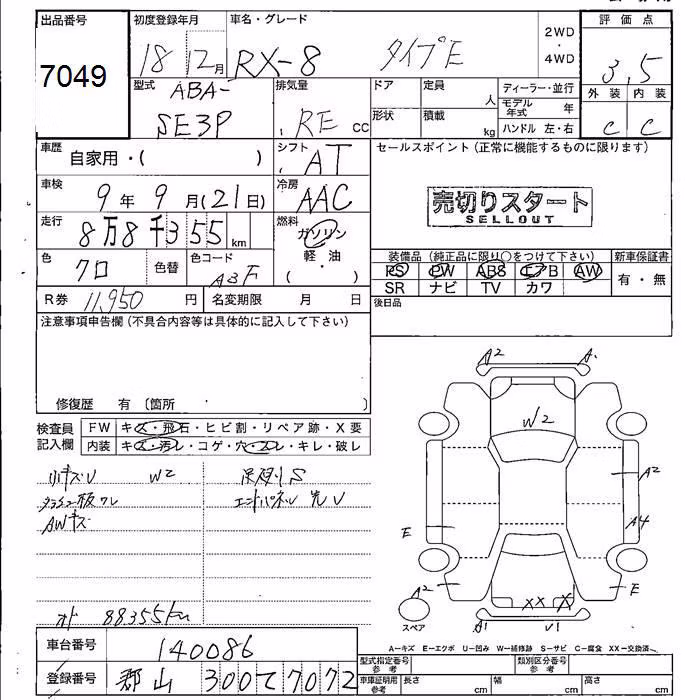 出品番号
7049
初度登録年月
18 12月
車名・グレード
RX-8 タイプE
2WD
・
4WD
評価点
3.5
外装 内装
C C
型式
ABA-
SE3P
排気量
RE cc
ドア
定員
人
形状
積載
kg
ディーラー・並行
モデル年式 年
ハンドル 左・右
車歴
自家用・( )
シフト
AT
セールスポイント (正常に機能するものに限ります)
車検
9年9月(21日)
冷房
AAC
売切りスタート
SELLOUT
走行
8万8千355km
燃料
ガソリン
軽・油
( )
色
クロ
色替
色コード
A3F
装備品 (純正品に限り○をつけて下さい)
PS PW ABS エアB AW
SR ナビ TV カワ
新車保証書
有・無
R券 11,950円
名変期限 月 日
後日品
注意事項申告欄 (不具合内容等は具体的に記入して下さい)
修復歴 有 〔箇所 〕
検査員
記入欄
FW キズ・飛石・ヒビ割・リペア跡・X要
内装 キズ・汚レ・コゲ・穴・スレ・キレ・破レ
W2
AWキズ
エンドパネル
オド 88355km
A2 A1
W2
A2
A4
E
E
A2
XX X
A1 V1
スペア
A−キズ E−エクボ U−凹み W−補修跡 S−サビ C−腐食 XX−交換済
車台番号
140086
登録番号
郡山 300 て 7072
型式指定番号
参考
類別区分番号
参考
車庫証明用
参考
長さ cm
幅 cm
高さ cm